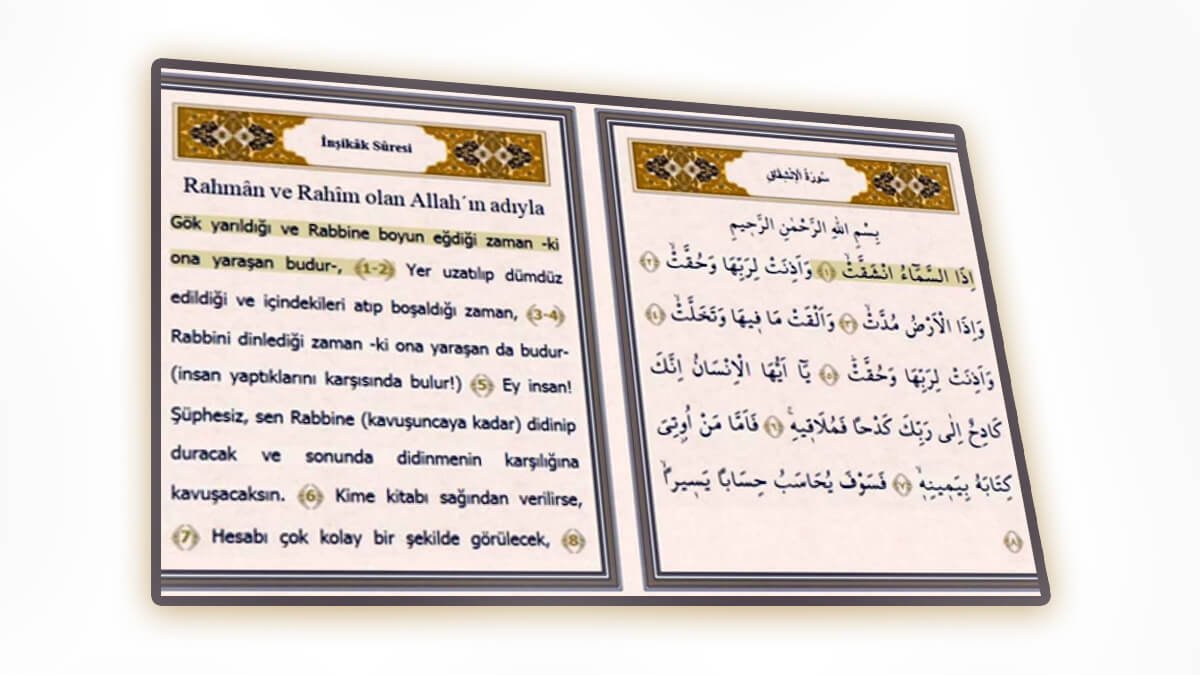 İnşikâk Sûresi
Rahmân ve Rahîm olan Allah´ın adıyla
Gök yarıldığı ve Rabbine boyun eğdiği zaman -ki
ona yaraşan budur-, (1-2) Yer uzatılıp dümdüz
edildiği ve içindekileri atıp boşaldığı zaman, (3-4)
Rabbini dinlediği zaman -ki ona yaraşan da budur-
(insan yaptıklarını karşısında bulur!) (5) Ey insan!
Şüphesiz, sen Rabbine (kavuşuncaya kadar) didinip
duracak ve sonunda didinmenin karşılığına
kavuşacaksın. (6) Kime kitabı sağından verilirse,
(7) Hesabı çok kolay bir şekilde görülecek, (8)
سُورَةُ الْاِنْشِقَاقِ
بِسْمِ اللّٰهِ الرَّحْمٰنِ الرَّح۪يمِ
اِذَا السَّمَٓاءُ انْشَقَّتْۙ ﴿١﴾ وَاَذِنَتْ لِرَبِّهَا وَحُقَّتْۙ ﴿٢﴾
وَاِذَا الْاَرْضُ مُدَّتْۙ ﴿٣﴾ وَاَلْقَتْ مَا ف۪يهَا وَتَخَلَّتْۙ ﴿٤﴾
وَاَذِنَتْ لِرَبِّهَا وَحُقَّتْۙ ﴿٥﴾ يَٓا اَيُّهَا الْاِنْسَانُ اِنَّكَ
كَادِحٌ اِلٰى رَبِّكَ كَدْحًا فَمُلَاق۪يهِۚ ﴿٦﴾ فَاَمَّا مَنْ اُو۫تِيَ
كِتَابَهُ بِيَم۪ينِه۪ۙ ﴿٧﴾ فَسَوْفَ يُحَاسَبُ حِسَابًا يَس۪يرًاۙ
﴿٨﴾